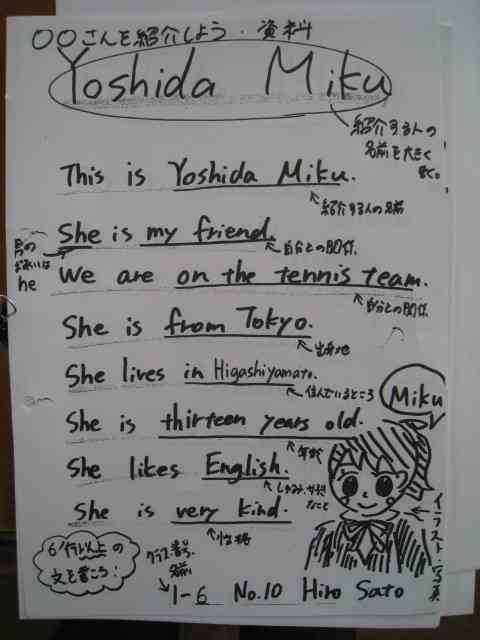 〇〇さんを紹介しよう・資料
Yoshida Miku
紹介する人の
名前を大きく
書く。
This is Yoshida Miku.
紹介する人の名前
She is my friend.
自分との関係
男の
ばあいは
he
We are on the tennis team.
自分との関係
She is from Tokyo.
出身地
She lives in Higashiyamato.
住んでいるところ
Miku
She is thirteen years old.
年齢
She likes English.
しゅみ、好き
なこと
She is very kind.
性格
イラスト・写真
6行以上の
文を書こう!
クラス、番号、
名前
1-6 No.10 Hiro Sato